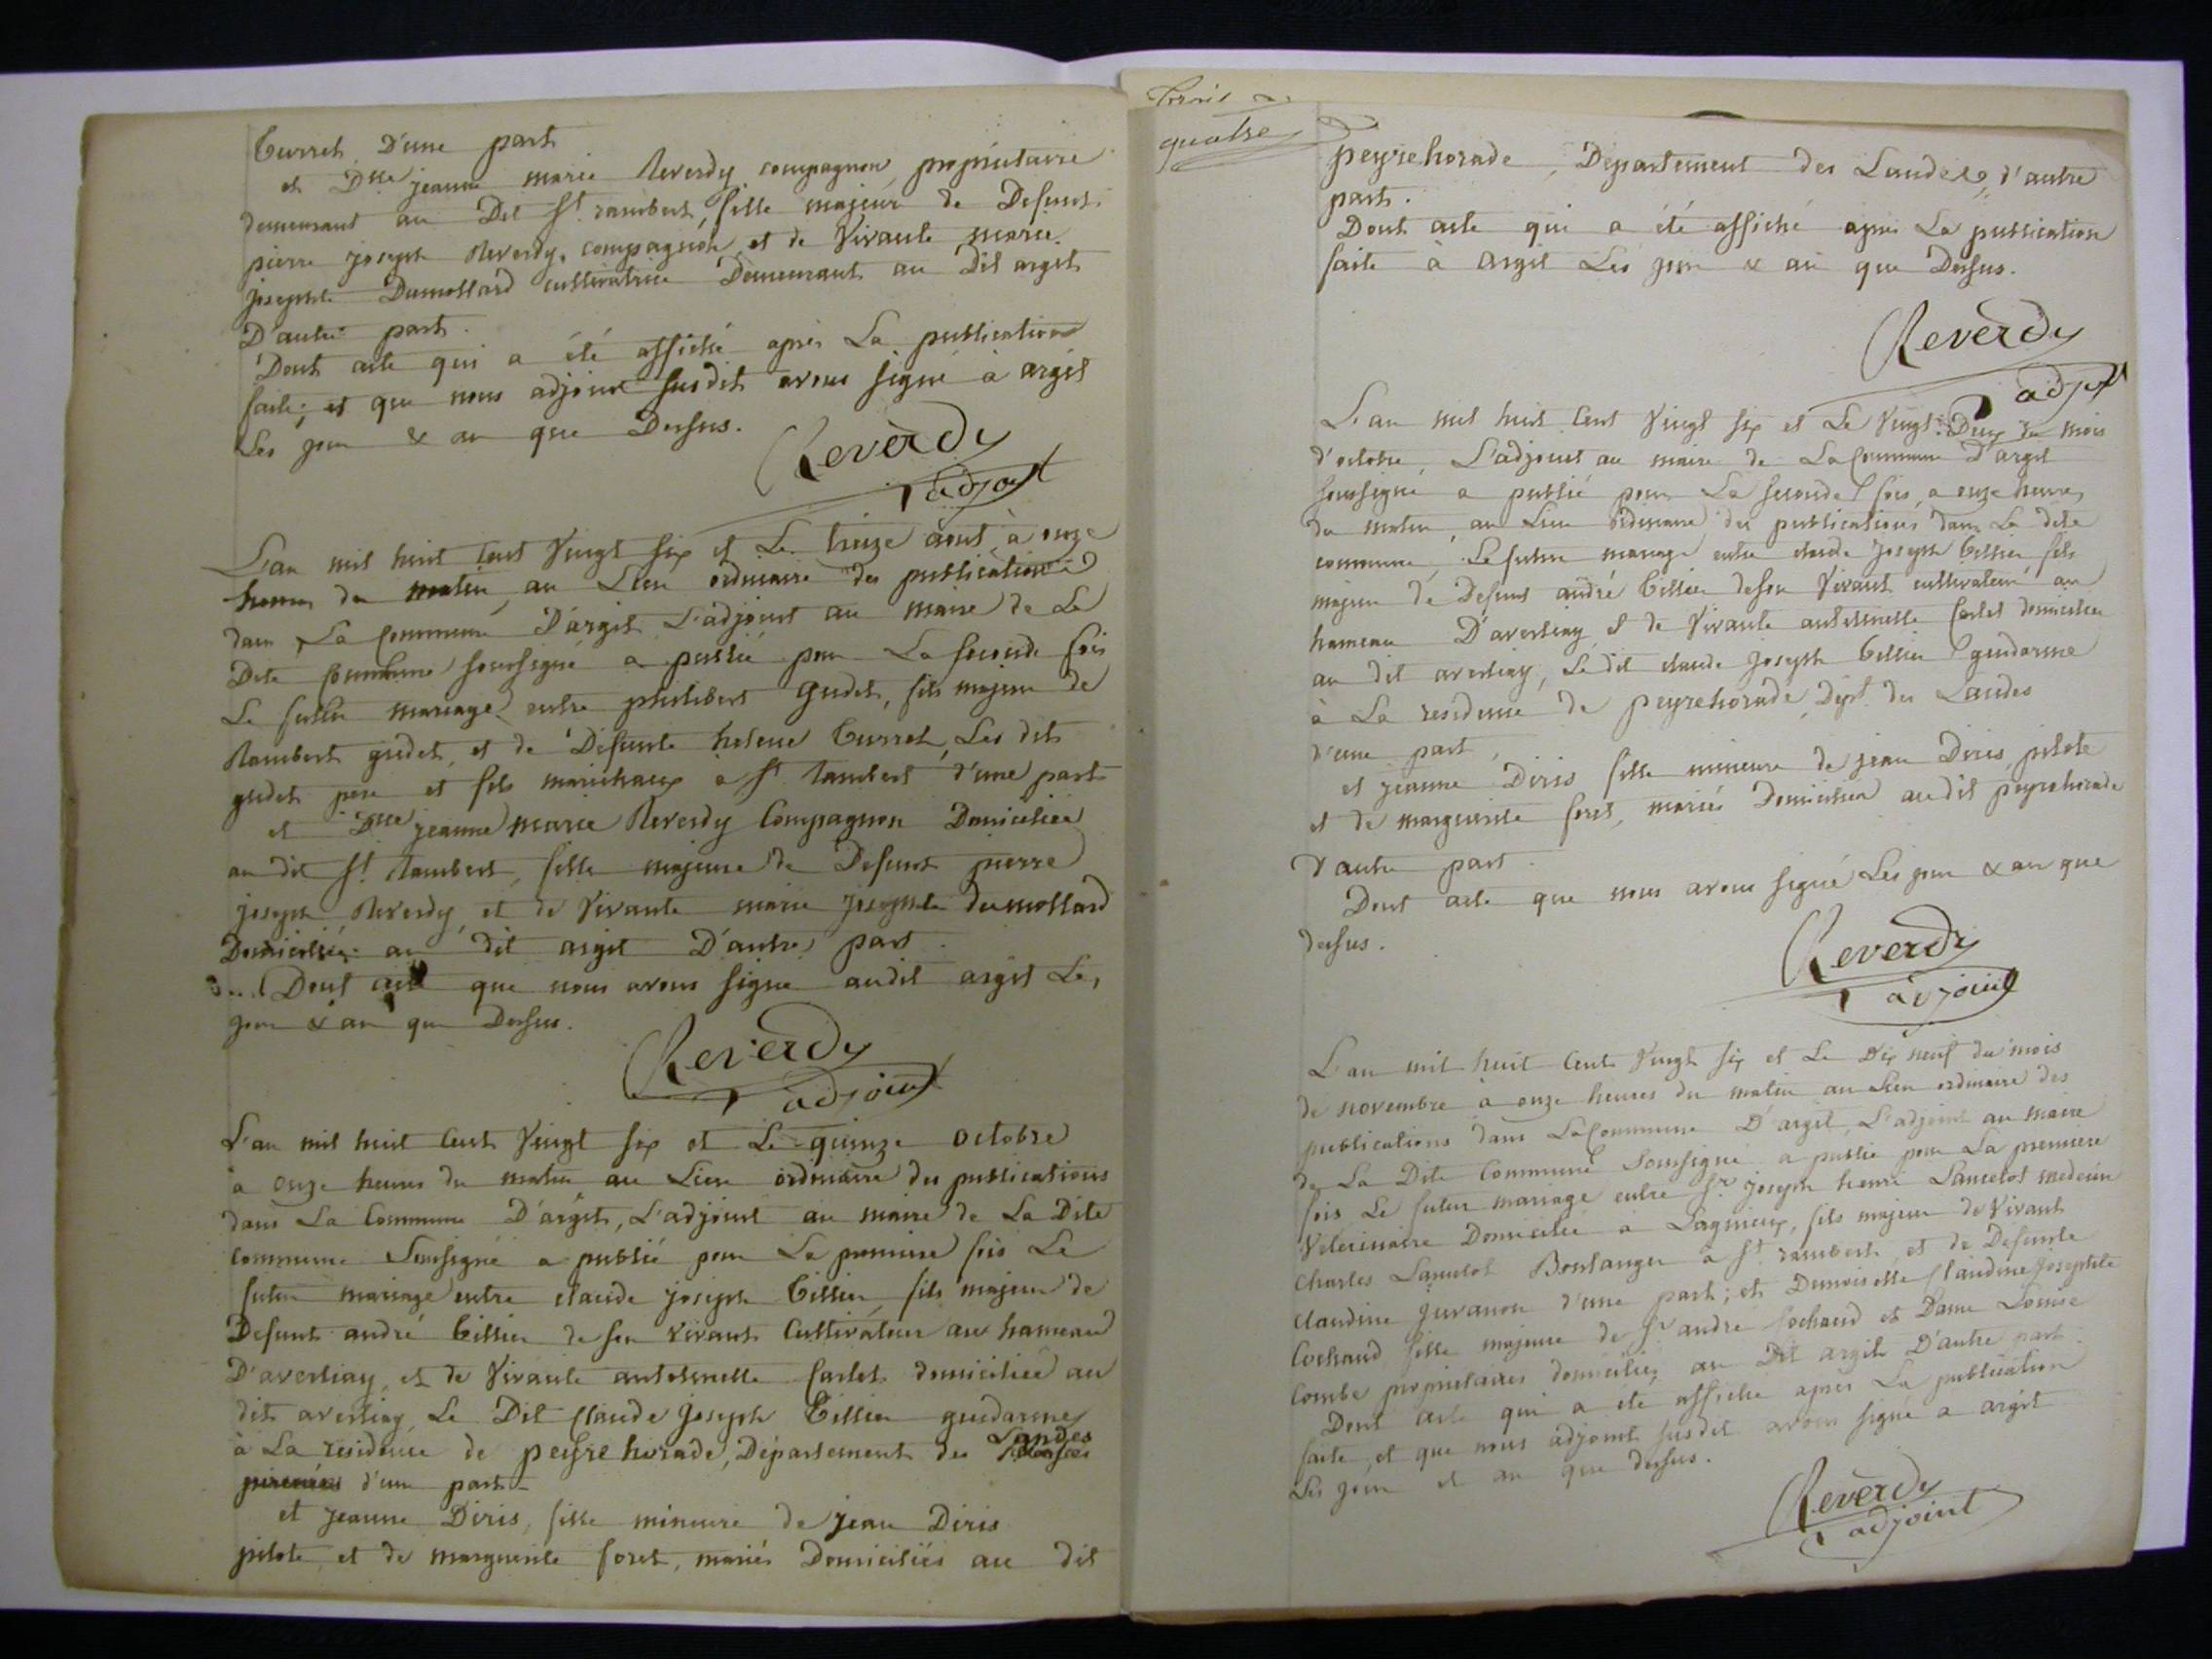 Turret D'une part
et Dlle jeanne marie Reverdy compagnon, propriétaire
demeurant au Dit St. rambert, fille majeur de Defunt
pierre joseph Reverdy, compagnon, et de Vivante marie
josephte Dumollard cultivatrice Demeurant au Dit argit
D'autre part.
Dont acte qui a été affiché après La publication
faite; et que nous adjoint susdit avons signé à argit
Les jour & an que Dessus.
Reverdy
adjoint
L'an mil huit Cent Vingt six et Le treize aout à onze
heures du matin, au Lieu ordinaire des publications
dans La Commune D'argit, L'adjoint au maire de La
Dite Commune soussigné a publié pour La seconde fois
Le futur mariage entre philibert Gudet, fils majeur de
Rambert gudet, et de Défunte helene Turret, Les dits
gudet pere et fils marichaux à St. rambert d'une part
et Dlle jeanne marie Reverdy Compagnon Domiciliée
au dit St. Rambert, fille majeure de Defunt pierre
joseph Reverdy, et de Vivante marie josephte dumollard
Domiciliée au dit argit D'autre part.
Dont acte que nous avons signé audit argit Les
jour & an que Dessus.
Reverdy
adjoint
L'an mil huit Cent Vingt six et Le quinze octobre
à onze heures du matin au Lieu ordinaire des publications
dans La Commune D'argit, L'adjoint au maire de La Dite
commune Soussigné a publié pour La premiere fois Le
futur mariage entre claude joseph Tillier, fils majeur de
Defunt andré Tillier de son vivant Cultivateur au hameau
D'averliay, et de Vivante antoinette Carlet domiciliée au
dit averliay, Le Dit Claude Joseph Tillier guidarme
à La residence de peyre horade, Département des Landes
d'une part
et jeanne Diris, fille mineure de jean Diris
pilote, et de marguerite foret, mariés Domiciliés au dit
quatre
peyrehorade, Departement des Landes, d'autre
part.
Dont acte qui a été affiché après La publication
faite à argit Les jour & an que Dessus.
Reverdy
adjt
L'an mil huit Cent Vingt six et Le Vingt Deux du mois
d'octobre, L'adjoint au maire de La Commune D'argit
soussigné a publié pour La seconde fois, a onze heures
du matin, au Lieu ordinaire des publications dans La dite
commune, Le futur mariage entre claude Joseph Tillier fils
majeur de Defunt andré Tillier de son Vivant cultivateur au
hameau D'averliay et de Vivante antoinette Carlet domiciliée
au dit averliay, Le dit claude Joseph Tillier guidarme
à La residence de peyrehorade, Dept. des Landes
d'une part,
et jeanne Diris fille mineure de jean Diris, pilote
et de marguerite foret, mariés Domiciliés audit peyrehorade
d'autre part.
Dont acte que nous avons signé Les jour & an que
dessus.
Reverdy
adjoint
L'an mil huit Cent Vingt six et Le Dix neuf du mois
de novembre à onze heures du matin au Lieu ordinaire des
publications dans La Commune D'argit, L'adjoint au maire
de La Dite Commune Soussigné a publié pour La premiere
fois Le futur mariage entre Sr. joseph henri Lancelot medecin
Veterinaire Domicilié à Lagnieux, fils majeur de Vivant
Charles Lancelot Boulanger à St. rambert, et de Defunte
claudine juvanon d'une part; et Demoiselle Claudine josephte
Cochaud fille majeure de Sr. andré Cochaud et Dame Louise
Combe propriétaires domiciliés au Dit argit D'autre part.
Dont acte qui a été affiché après La publication
faite, et que nous adjoint susdit avons signé a argit
Les jour et an que dessus.
Reverdy
adjoint